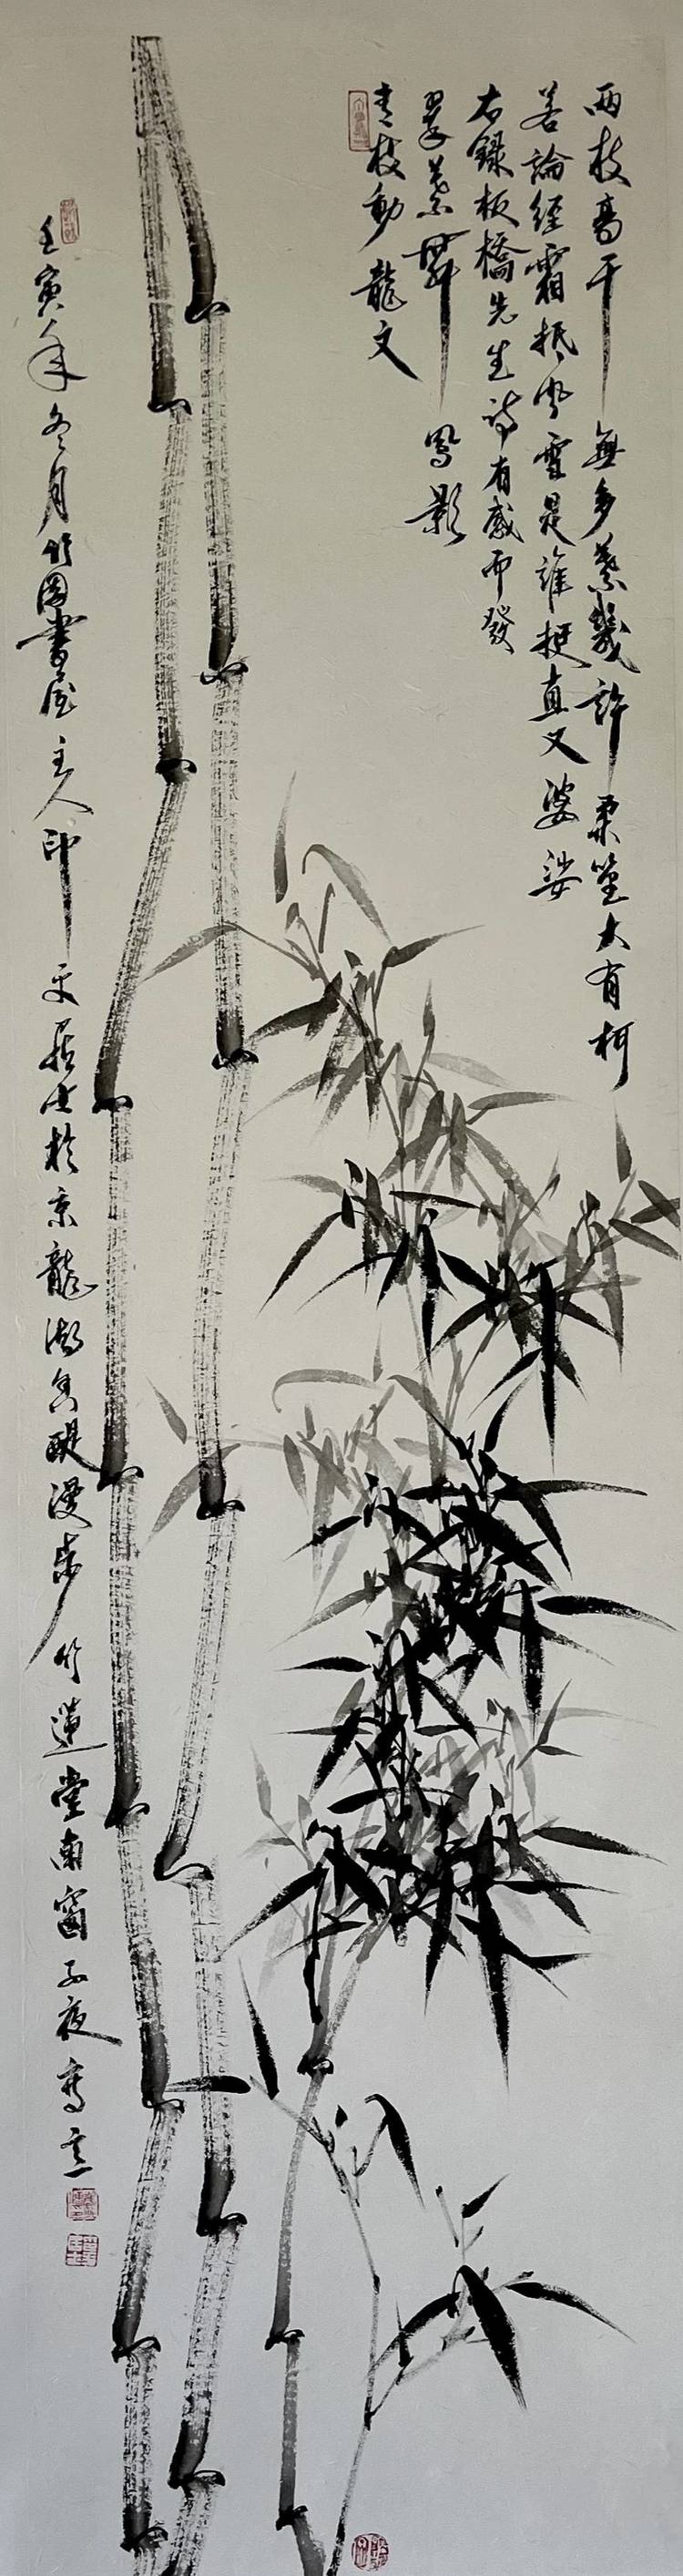 兩枝高干無多葉幾許柔篁大有柯
若論經霜抵風雪是誰挺直又婆娑
右錄板橋先生詩有感而發
翠葉舞鳳影
青枝動龍文
壬寅年冬月竹園書屋主人印文居士於京龍湖香醍漫步竹蓮堂南窗子夜寫意